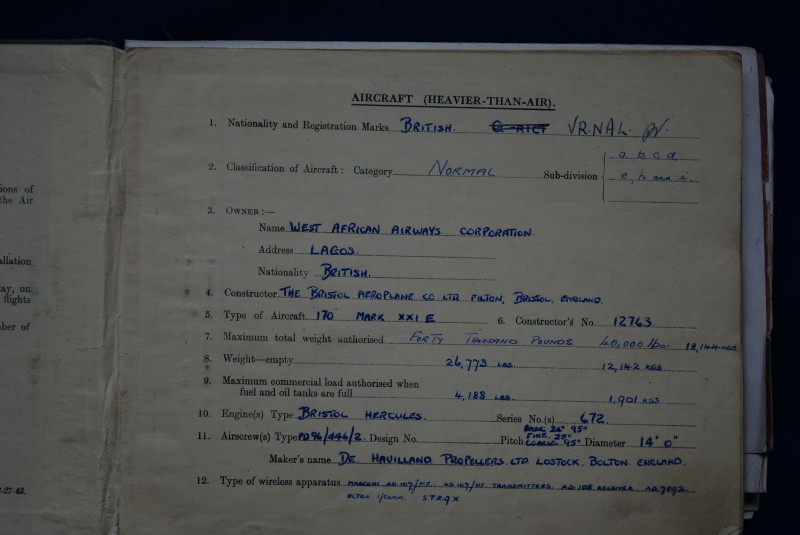 ions of
the Air
allation
ay, on
flights
ber of
-27-43.
AIRCRAFT (HEAVIER-THAN-AIR).
1. Nationality and Registration Marks BRITISH. G-AICT VR.NAL.
a. b. c. d.
2. Classification of Aircraft: Category NORMAL Sub-division e, h and i.
3. OWNER:—
Name WEST AFRICAN AIRWAYS CORPORATION.
Address LAGOS.
Nationality BRITISH.
4. Constructor THE BRISTOL AEROPLANE CO LTD FILTON, BRISTOL, ENGLAND.
5. Type of Aircraft 170 MARK XXI E 6. Constructor's No. 12763
7. Maximum total weight authorised FORTY THOUSAND POUNDS 40,000 lbs. 18,144 KGS
8. Weight—empty 26,773 LBS 12,142 KGS
9. Maximum commercial load authorised when
fuel and oil tanks are full 4,188 LBS. 1,901 KGS
10. Engine(s) Type BRISTOL HERCULES. Series No.(s) 672.
11. Airscrew(s) Type PD96/446/2. Design No. Pitch FINE 25° COARSE 95° Diameter 14' 0"
Maker's name DE. HAVILLAND PROPELLERS. LTD. LOSTOCK. BOLTON. ENGLAND.
12. Type of wireless apparatus MARCONI AD.107/ AD.107/ TRANSMITTERS. AD.108 RECEIVER AD.7092
ULTRA STR9X